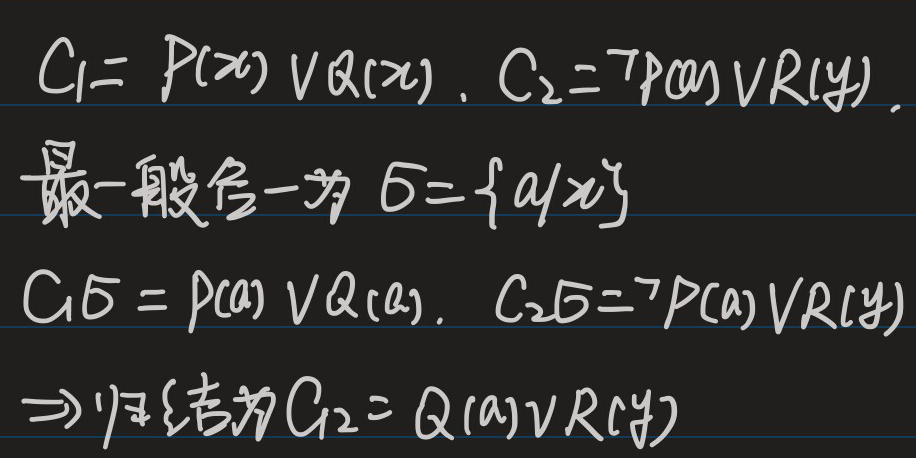 C₁ = P(x) ∨ Q(x). C₂ = ¬P(a) ∨ R(y).
最一般合一为 σ = {a/x}
C₁σ = P(a) ∨ Q(a). C₂σ = ¬P(a) ∨ R(y)
⇒ 归结为 C₁₂ = Q(a) ∨ R(y)